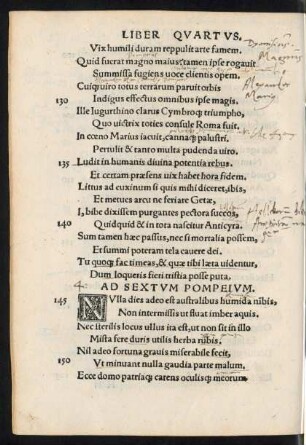 LIBER QVARTVS.
Vix humili duram reppulit arte famem.
Quid fuerat magno maius: tamen ipse rogauit
Summissa fugiens uoce clientis opem.
Cuiq; uiro totus terrarum paruit orbis
130 Indigus effectus omnibus ipse magis.
Ille Iugurthino clarus Cymbroq; triumpho,
Quo uictrix toties consule Roma fuit.
In cœno Marius iacuit, cannaq; palustri.
Pertulit & tanto multa pudenda uiro.
135 Ludit in humanis diuina potentia rebus.
Et certam præsens uix habet hora fidem.
Littus ad euxinum si quis mihi diceret, ibis,
Et metues arcu ne feriare Getæ,
I, bibe dixissem purgantes pectora succos,
140 Quidquid & in tota nascitur Anticyra.
Sum tamen hæc passus, nec si mortalia possem,
Et summi poteram tela cauere dei.
Tu quoq; fac timeas, & quæ tibi læta uidentur,
Dum loqueris fieri tristia posse puta.
AD SEXTUM POMPEIVM.
145 NVlla dies adeo est australibus humida nibis,
Non intermissis ut fluat imber aquis.
Nec sterilis locus ullus ita est, ut non sit in illo
Mista fere duris utilis herba rubis.
Nil adeo fortuna grauis miserabile fecit,
150 Vt minuant nulla gaudia parte malum.
Ecce domo patriaq; carens oculisq; meorum